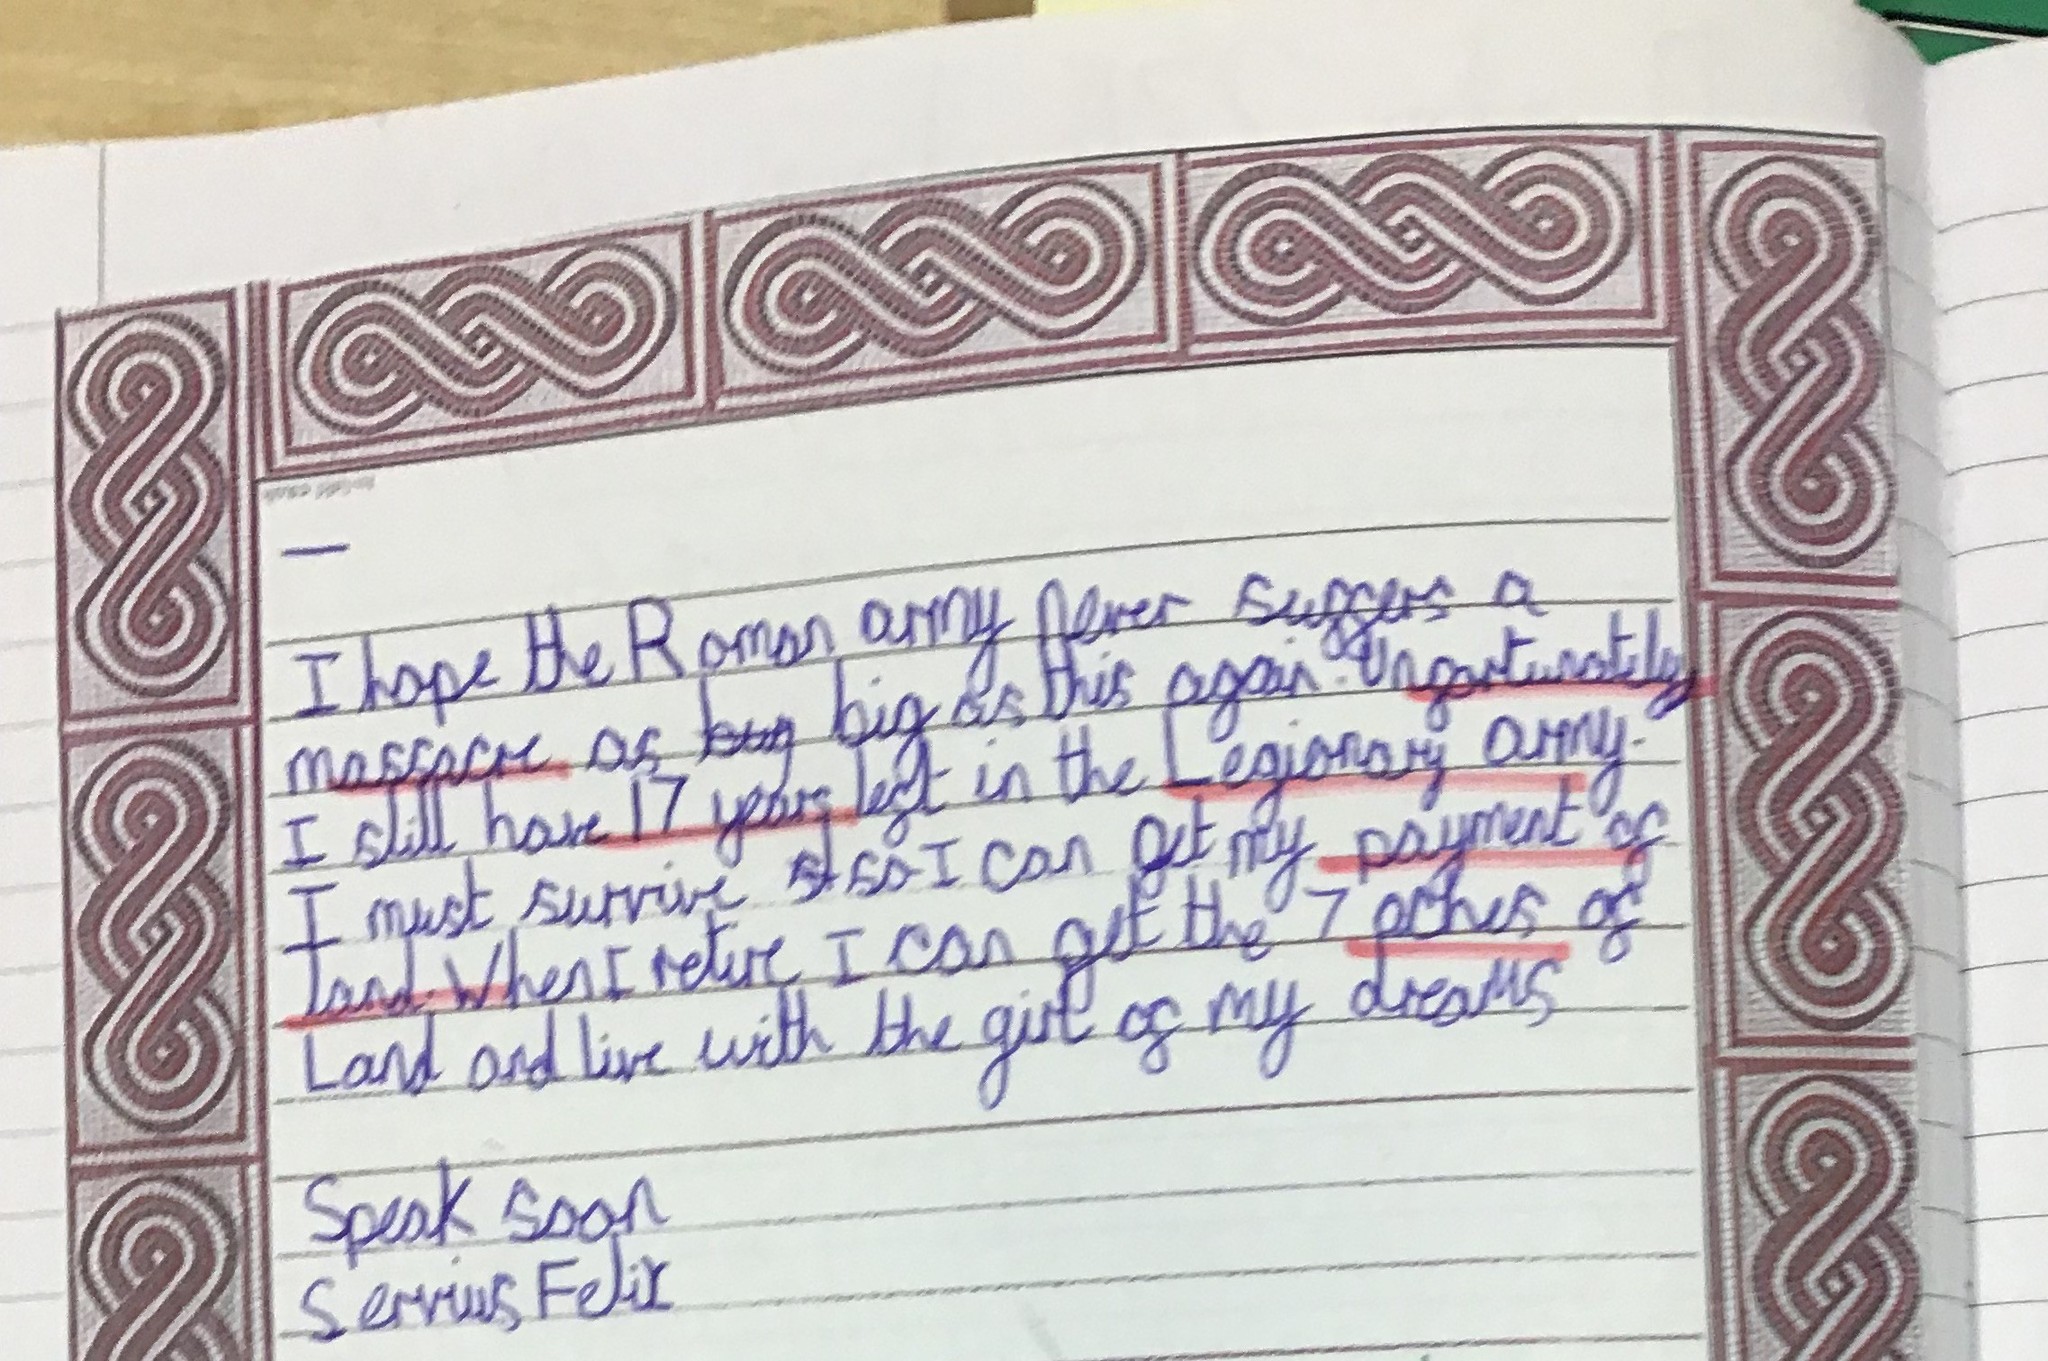 I hope the Roman army never suffers a
massacre as big as this again. Unfortunately
I still have 17 years left in the Legionary army.
I must survive so I can get my payment of
land. When I retire I can get the 7 aches of
Land and live with the girl of my dreams
Speak soon
Servius Felix